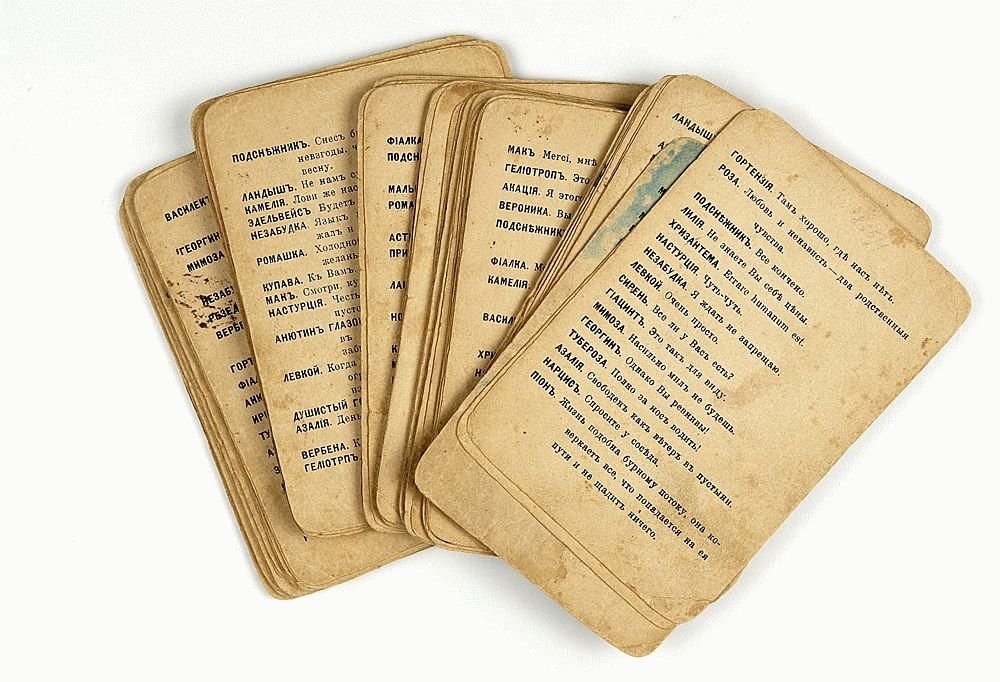 ВАСИЛЕК
ГЕОРГИН
МИМОЗА
НЕЗАБУ
ВЕРБЕ
ГОРТ
ФІА
АНЮ
ИРИ
ТУ
ПОДСНѢЖНИКЪ. Снесъ б
невзгоды, ч
весну.
ЛАНДЫШЪ. Не намъ с
КАМЕЛІЯ. Лови же нас
ЭДЕЛЬВЕЙСЪ Будетъ
НЕЗАБУДКА. Языкъ
жал и
РОМАШКА. Холодно
желань
КУПАВА. Къ Вамъ,
МАКЪ. Смотри, ку
НАСТУРЦІЯ. Честь
пусто
АНЮТИНЪ ГЛАЗО
въ
заб
ЛЕВКОЙ. Когда
огр
из
ДУШИСТЫЙ ГО
АЗАЛІЯ. День
ВЕРБЕНА. К
ГЕЛІОТРПЪ.
ФІАЛКА
ПОДСН
МАЛЬ
РОМА
АСТ
ПРИ
ЛА
НО
МАКЪ Merci, мнѣ
ГЕЛІОТРОПЪ. Это
АКАЦІЯ. Я этого
ВЕРОНИКА. Вы
ПОДСНѢЖНИК
ФІАЛКА. М
КАМЕЛІЯ.
ВАСИЛ
ХРИ
НА
ЛАНДЫШ
ГОРТЕНЗІЯ. Тамъ хорошо, гдѣ насъ нѣтъ.
РОЗА. Любовь и ненависть—два родственныя
чувства.
ПОДСНѢЖНИКЪ. Все кончено.
ЛИЛІЯ. Не знаете Вы себѣ цѣны.
ХРИЗАНТЕМА. Errare humanum est.
НАСТУРЦІЯ. Чуть-чуть.
НЕЗАБУДКА. Я ждать не запрещаю.
ЛЕВКОЙ. Очень просто.
СИРЕНЬ. Все ли у Васъ есть?
ГІАЦИНТЪ. Это такъ для виду.
МИМОЗА. Насильно милъ не будешь.
ГЕОРГИНЪ. Однако Вы ревнивы!
ТУБЕРОЗА. Полно за носъ водить!
АЗАЛІЯ. Свободенъ какъ вѣтеръ въ пустыни.
НАРЦИСЪ. Спросите у сосѣда.
ПІОНЪ. Жизнь подобна бурному потоку, она ко-
веркаетъ все, что попадается на ея
пути и не щадитъ ничего.